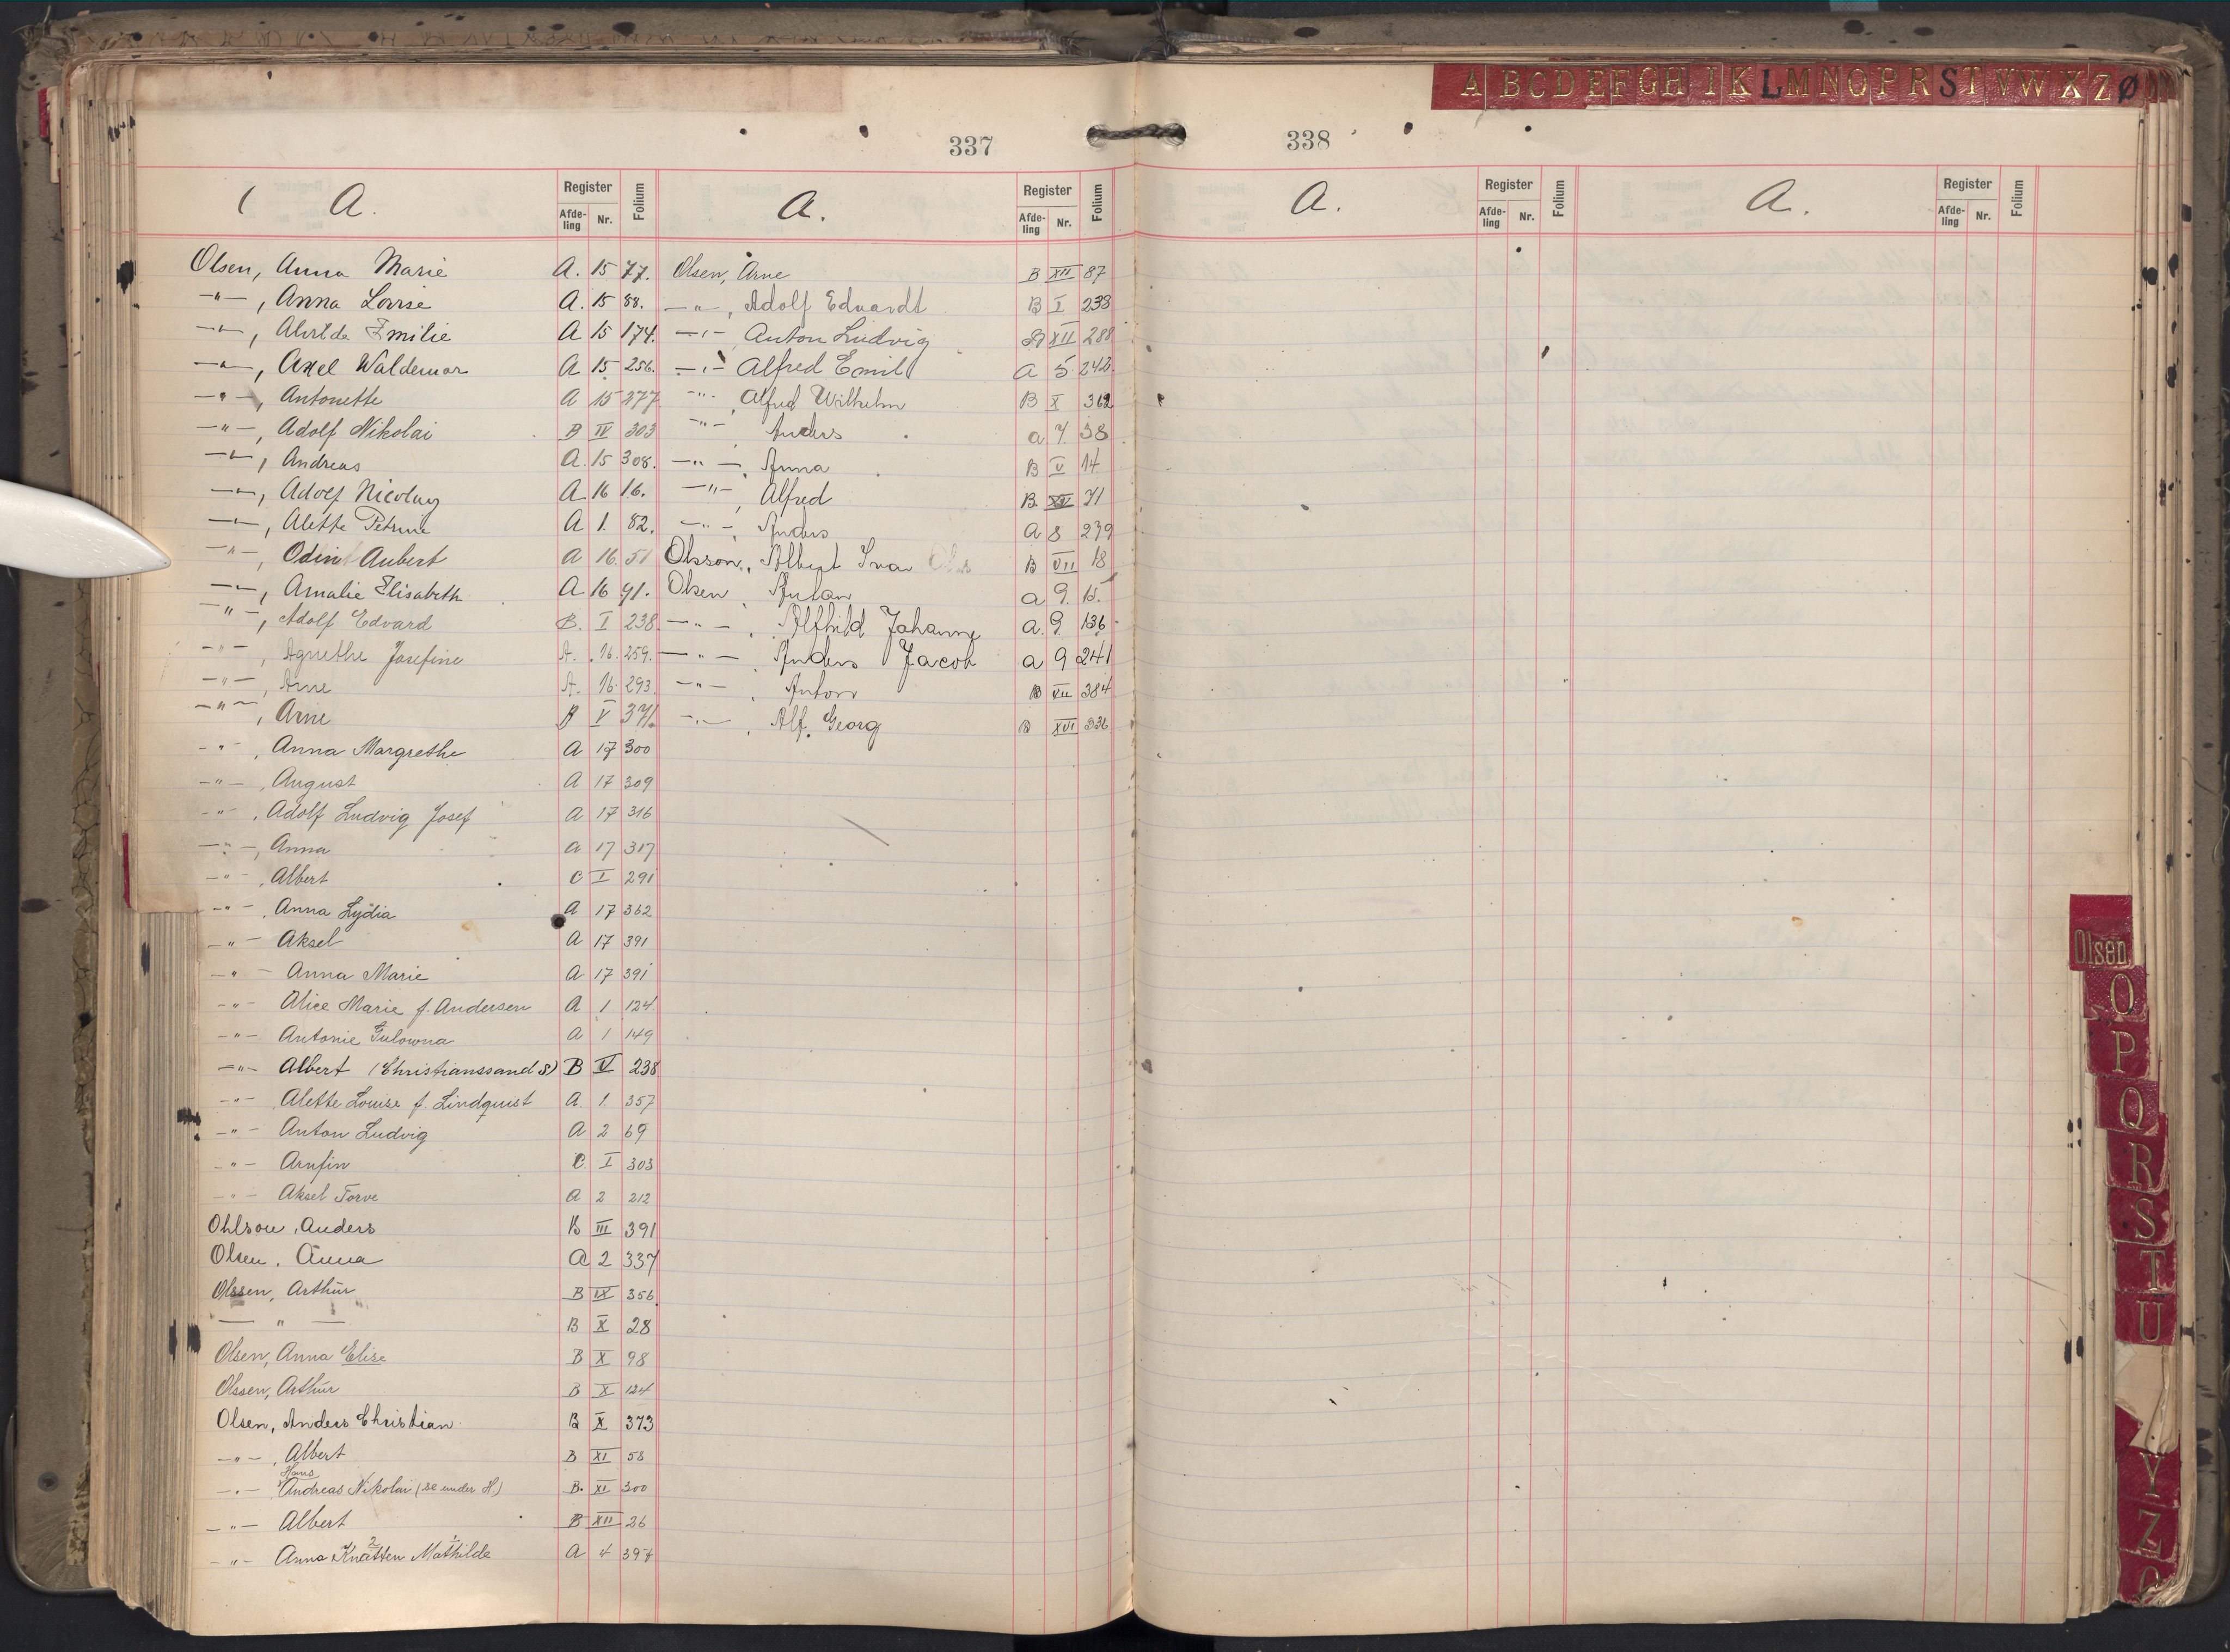 A B C D E F G H I K L M N O P R S T V W X Z Ø
337
A.
Register
Afde-ling Nr. Folium
Olsen, Anna Marie A. 15 77.
—"—, Anna Lovise A. 15 88.
—"—, Emilie A 15 174.
—"—, Axel Waldemar A 15 256.
—"—, Antonette A 15 277
—"—, Adolf Nikolai B IV 303
—"—, Andreas A. 15 308.
—"—, Adolf Nicolay A 16 16.
—"—, Alette Petrine A 1. 82.
—"—, Odin Aubert A 16. 51
—"—, Amalie Elisabeth A 16 91.
—"—, Adolf Edvard B. I 238.
—"—, Agnethe Josefine A. 16. 259.
—"—, Arne A. 16. 293.
—"—, Arne B V 371.
—"—, Anna Margrethe A 17 300
—"—, August A 17 309
—"—, Adolf Ludvig Josef A 17 316
—"—, Anna A 17 317
—"—, Albert C I 291
—"—, Anna Lydia A 17 362
—"— Aksel A 17 391
—"— Anna Marie A 17 391
—"— Alice Marie f. Andersen A 1 124
—"— Antonie Gulowna A 1 149
—"— Albert (Christianssand S) B V 238
—"— Alette Louise f. Lindquist A. 1. 357
—"— Anton Ludvig A 2 69
—"— Arnfin C I 303
—"— Aksel Torve A 2 212
Ohlson, Anders B III 391
Olsen, Anna A 2 337
Olssen, Arthur B IX 356
— " — B X 28
Olsen, Anna Elise B X 98
Olssen, Arthur B X 124
Olsen, Anders Christian B X 373
—"—, Albert B XI 58
Hans
—"— Andreas Nikolai (se under H.) B. XI 300
—"— Albert B XII 26
—"— Anna Knatten Mathilde A 4
A.
Register
Afde-ling Nr. Folium
Olsen, Arne B XII 87
—"—, Adolf Edvardt B I 238
—"— Anton Ludvig XII 288
—"— Alfred Emil A 5
—"—, Alfred Wilhelm B X 362
—"— Anders a 7. 38
—"—, Anna B V 14
—"—, Alfred B 71
—"—, Anders A 8 239
Olsson, Albert Ivar B VII 18
Olsen, a 9. 15.
—"—, Alfhild Johanne a. 9. 136
—"—, Anders Jacob a 9 241
—"—, Anton B XII 384
—"—, Alf Georg B XVI 336
338
A.
Register
Afde-ling Nr. Folium
A.
Register
Afde-ling Nr. Folium
Olsen
O
P
Q
R
S
T
U
Y
Z